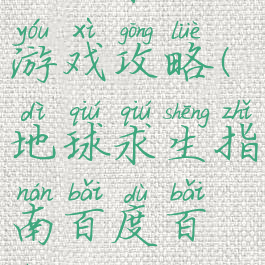 yóu xì gōng lüè
游戏攻略(
dì qiú qiú shēng zhǐ
地球求生指
nán bǎi dù bǎi
南百度百